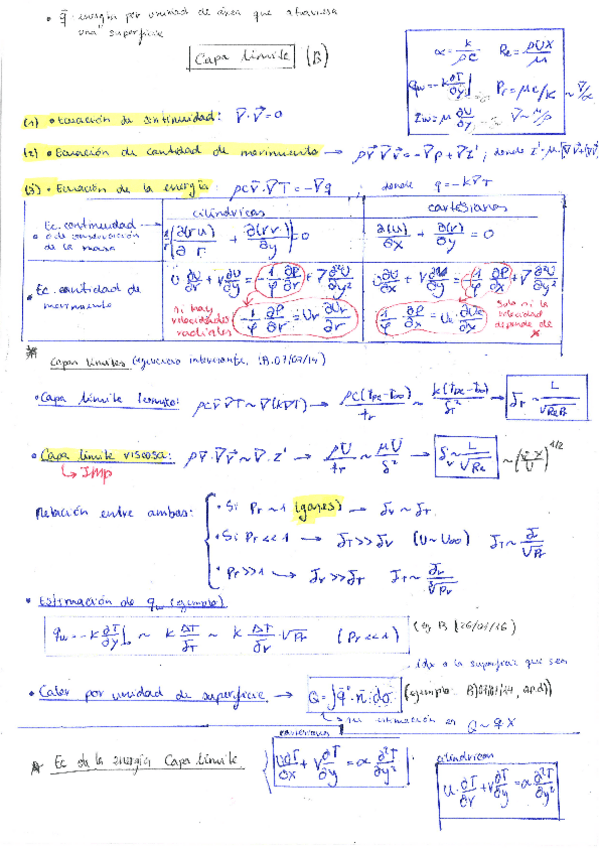 • q̄ energía por unidad de área que atraviesa
una superficie
Capa límite (B)
α = k/ρc   Re = ρUX/μ
qw = -k ∂T/∂y   Pr = μc/k ~ ν/α
Zw = μ ∂U/∂y   ν ~ μ/ρ
(1) • Ecuación de continuidad: ∇·v̄ = 0
(2) • Ecuación de cantidad de movimiento → ρv̄·∇v̄ = -∇p + ∇·z'; donde z' = μ·
(3) • Ecuación de la energía: ρc v̄·∇T = -∇q; donde q = -k∇T
cilíndricas
cartesianas
Ec. continuidad
o de conservación
de la masa
∂(ru)/∂r + ∂(rv)/∂y = 0
∂(u)/∂x + ∂(v)/∂y = 0
• Ec. cantidad de
movimiento
U ∂U/∂r + V ∂U/∂y = -1/ρ ∂P/∂r + ν ∂²U/∂y²
U ∂U/∂x + V ∂U/∂y = -1/ρ ∂P/∂x + ν ∂²U/∂y²
si hay
velocidades
radiales
-1/ρ ∂P/∂r = Ur ∂Ur/∂r
-1/ρ ∂P/∂x = Ue ∂Ue/∂x
Solo si la
velocidad
depende de
x
Capas límites (ejercicio interesante, B.07/07/14)
• Capa límite térmico: ρc v̄ ∇T ~ ∇(k∇T) → ~ → δT ~ L/√RePr
• Capa límite viscosa: ρv̄·∇v̄ ~ ∇·z' → ρU/tr ~ μU/δ² → δv ~ L/√Re ~ (ν·X/U)^1/2
→ Imp
Relación entre ambas:
• Si Pr ~ 1 (gases) → δv ~ δT
• Si Pr << 1 → δT >> δv (U ~ U∞) δT ~ δ/√Pr
• Pr >> 1 → δv >> δT δT ~ δv/√Pr
• Estimación de qw (ejemplo)
qw = -k ∂T/∂y|₀ ~ k ΔT/δT ~ k ΔT/δv · √Pr (Pr << 1)
• Calor por unidad de superficie → Q = ∫q̄·n̄·dσ
→ su estimación es Q ~ q X
Ec de la energía Capa límite
cartesianas
U ∂T/∂x + V ∂T/∂y = α ∂²T/∂y²
cilíndricas
U·∂T/∂r + V ∂T/∂y = α ∂²T/∂y²